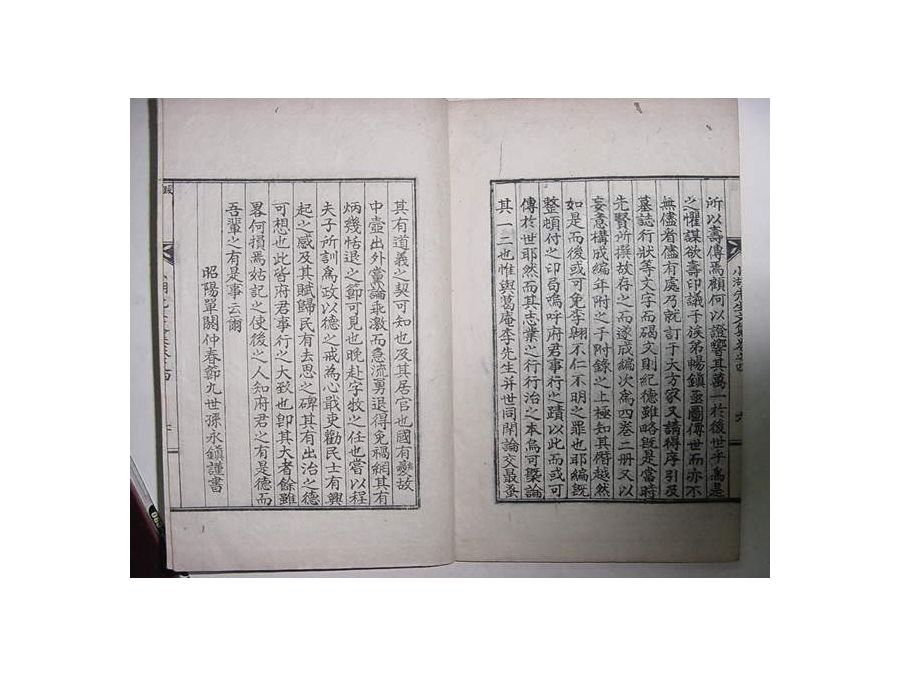 所以壽傳焉顧何以證響其萬一於後世乎爲是
之懼謀欲壽印議于族弟暢鎮亟圖傳世而亦不
無儘者儘有處乃就訂于大方家又請得序引及
墓誌行狀等文字而碣文則紀德雖略旣是當時
先賢所撰故存之而遂成編次爲四卷二册又以
妄意構成編年附之于附錄之上極知其僭越然
如是而後或可免李翺不仁不明之罪也耶編旣
整頓付之印局嗚呼府君事行之蹟以此而或可
傳於世耶然而其志業之行行治之本烏可槩論
其一二也惟與葛庵李先生并世同閈論交最蚤
其有道義之契可知也及其居官也國有變故
中壼出外黨論乖激而急流勇退得免禍網其有
炳幾恬退之節可見也晚赴字牧之任也嘗以程
夫子所訓爲政以德之戒爲心戢吏勸民士有興
起之感及其賦歸民有去思之碑其有出治之德
可想也此皆府君事行之大致也卽其大者餘雖
畧何損焉姑記之使後之人知府君之有是德而
吾輩之有是事云爾
昭陽單閼仲春節九世孫永鎮謹書